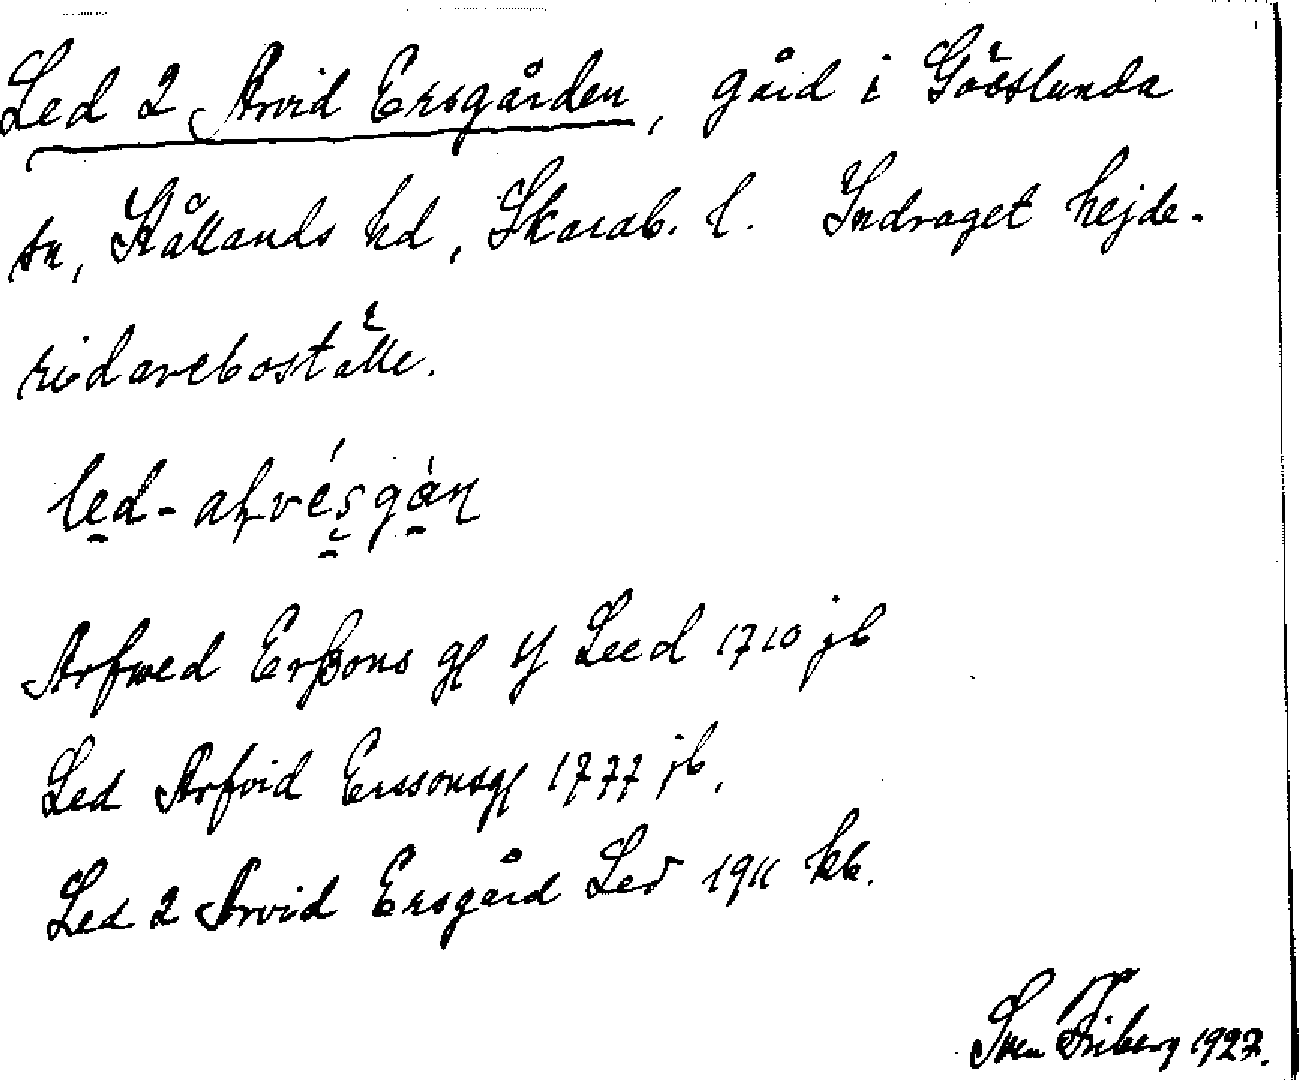 Led 2 Arvid Ersgården, gård i Gösslunda
sn, Kållands hd, Skarab. l. Indraget hejde-
ridareboställe.
led-aɽvésgán
Arfwed Erßons gl Y Leed 1710 jb
Led Arfvid Erssonsgl 1777 jb.
Led 2 Arvid Ersgård Led 1911 kb.
Sven Friberg 1927.